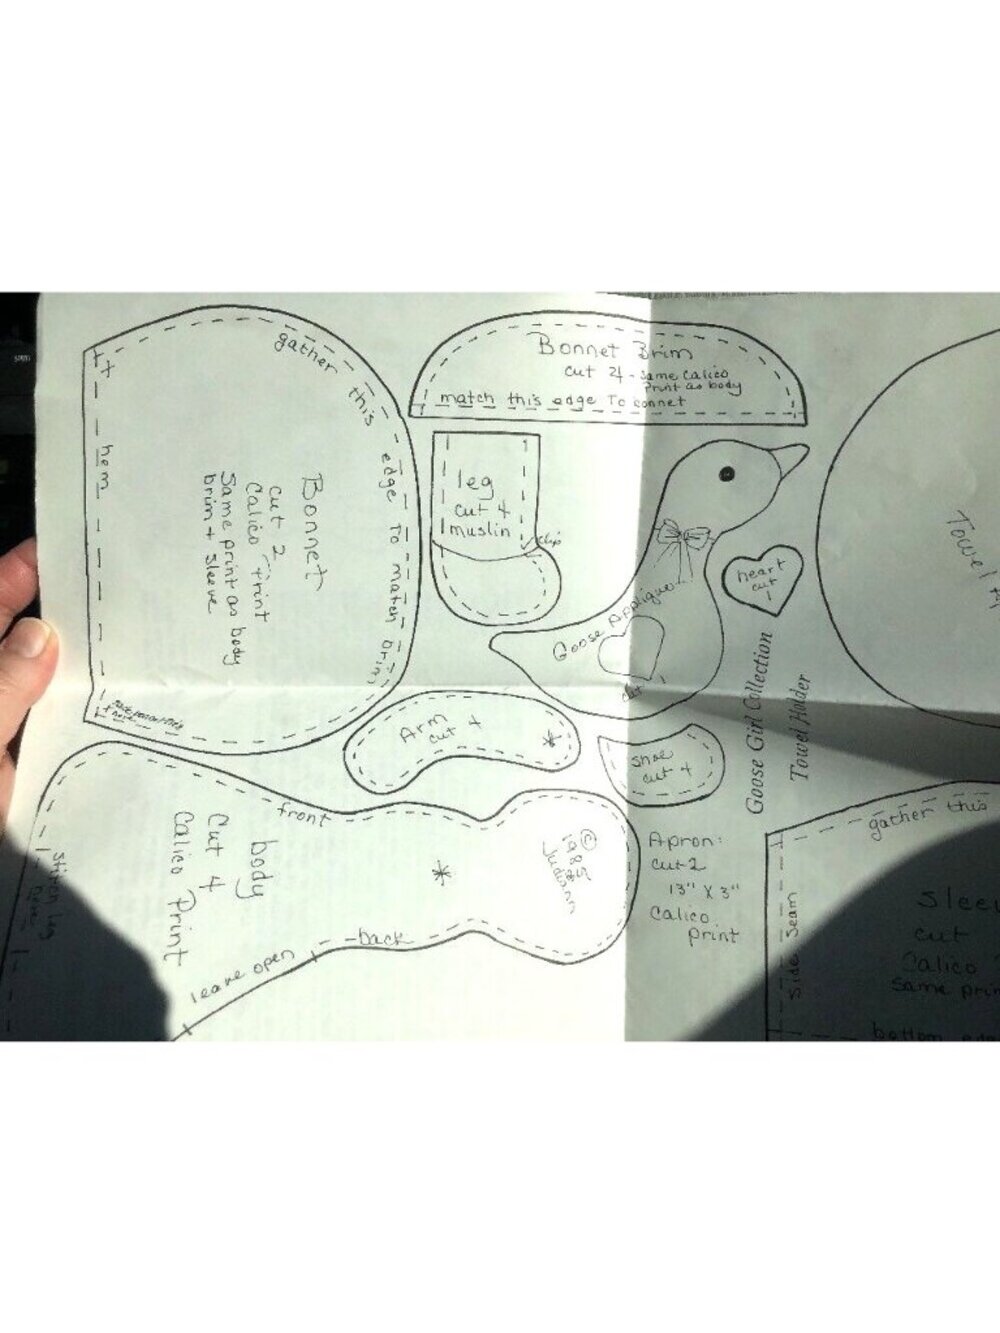 gather this edge to match brim
hem
Bonnet
cut 2
Calico Print
Same print as body
brim + sleeve
Bonnet Brim
cut 4 - same calico
Print as body
match this edge To bonnet
leg
cut 4
muslin
clip
Goose Applique
cut 1
heart
cut
1
Goose Girl Collection
Towel Holder
Towel
Arm
cut 4
*
shoe
cut 4
front
body
Cut 4
Calico Print
*
©
Judiann
back
leave open
Stitch leg
here
Apron:
cut 2
13" X 3"
Calico
print
gather this
Side Seam
cut
Calico
Same
bottom